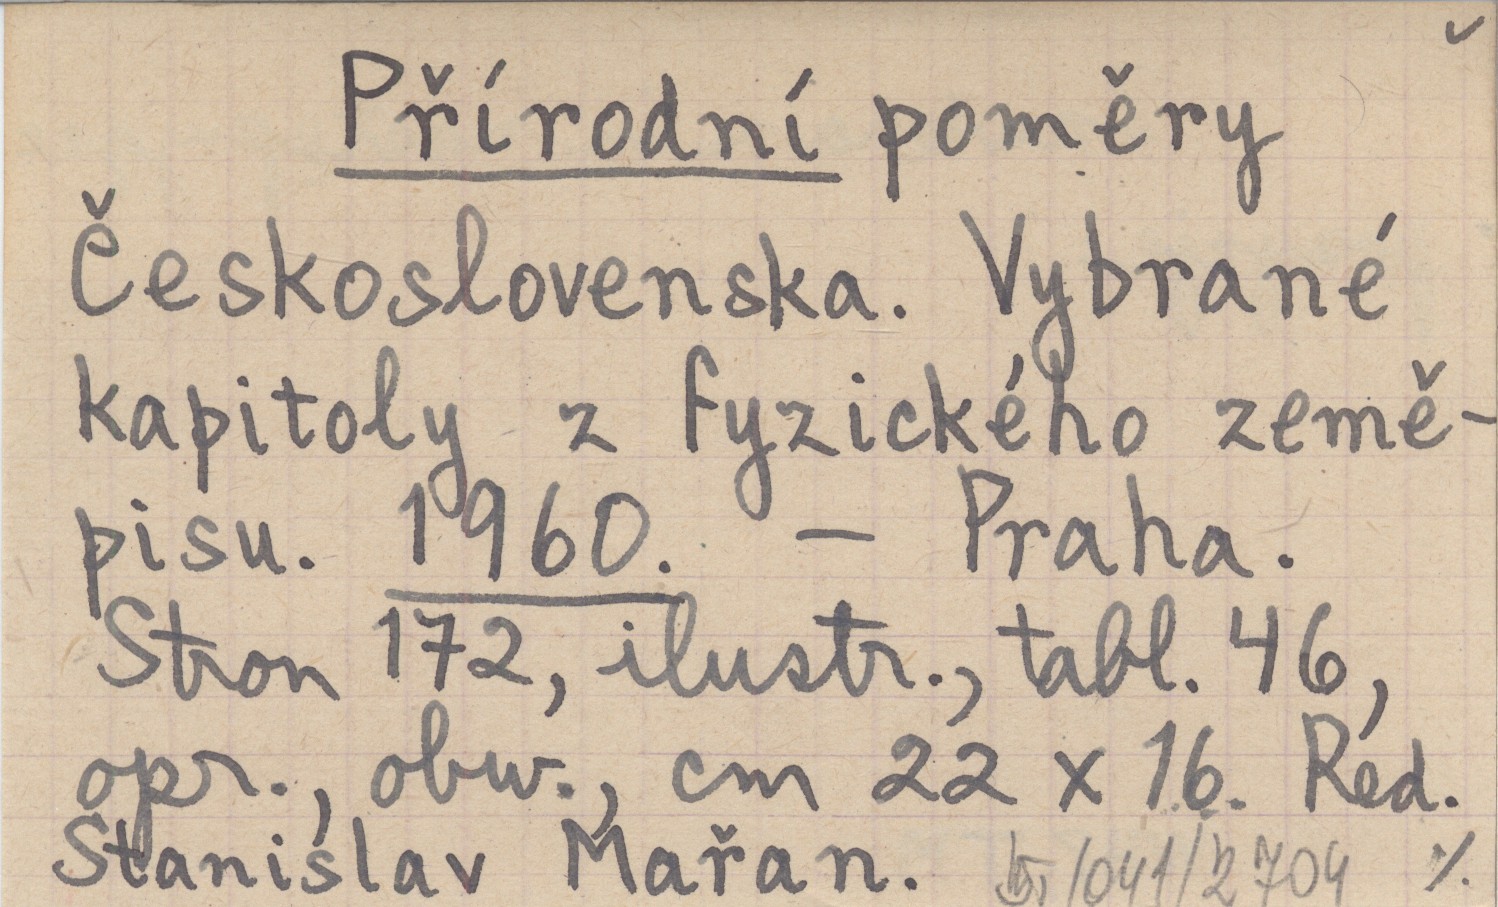 Přírodní poměry
Československa. Vybrané
kapitoly z fyzického země-
pisu. 1960. — Praha.
Stron 172, ilustr., tabl. 46,
opr., obw., cm 22 x 16. Red.
Stanislav Mařan. /041/2704 ·/.